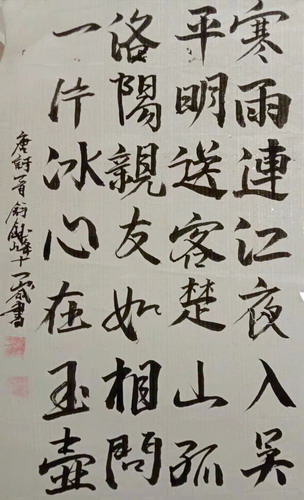 寒雨連江夜入吴
平明送客楚山孤
洛陽親友如相問
一片冰心在玉壺
唐詩一首 十一歲書